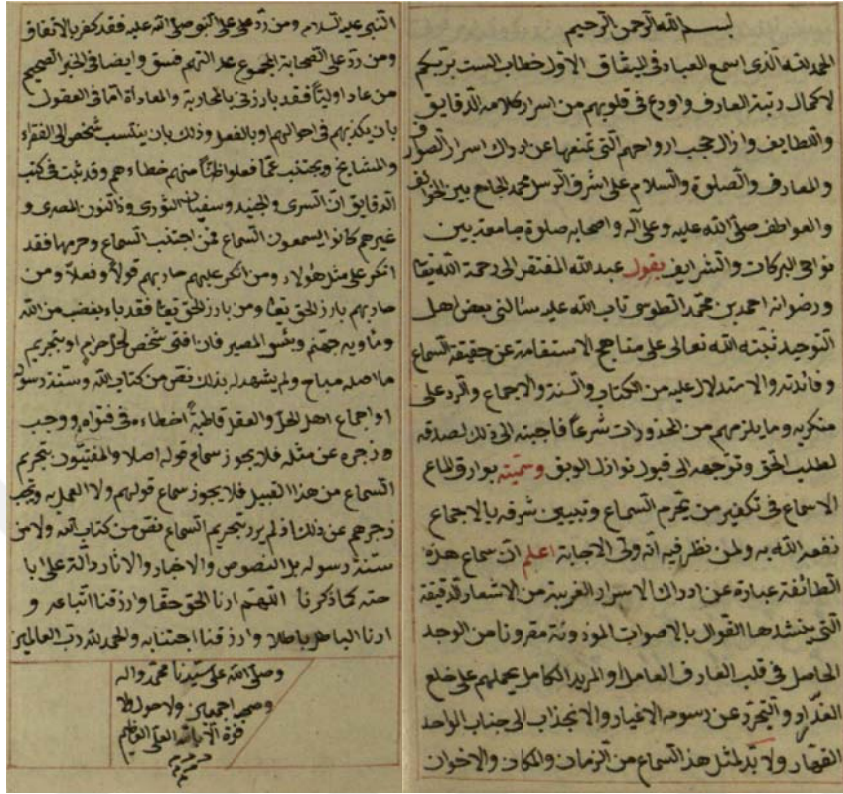 بسم الله الرحمن الرحيم
الحمد لله الذى اسمع العباد فى الميثاق الاول خطاب الست بربكم
لاكمال رتبة العارف واودع فى قلوبهم من اسرار كلامه الدقايق
واللطايف وازال حجب ارواحهم التى تمنعها عن ادراك اسرار
والمعارف والصلوة والسلام على اشرف الرسل محمد الجامع بين الخوايف
والعواطف صلى الله عليه وعلى آله واصحابه صلوة جامعة بين
نواحى البركات والتشرايف يقول عبد الله المفتقر الى رحمة الله تعا
ورضوانه احمد بن محمد الطوسى تاب الله عليه سئالنى بعض اهل
التوحيد ثبته الله تعالى على مناهج الاستقامة عن حقيقة السماع
وفائدته والاستدلال عليه من الكتاب والسنة والاجماع والرد على
منكريه وما يلزمهم من المحذورات شرعا فاجبته الى ذلك لصدقه
لطلب الحق وتوجهه الى قبول نوازل وسميته بوارق الماع
الاسماع فى تكفير من يحرم السماع وتبيين شرفه بالاجماع
نفعه الله به ولمن نظر فيه انه ولى الاجابة اعلم ان سماع هذه
الطائفة عبارة عن ادراك الاسرار الغريبة من الاشعار الدقيقة
التى ينشدها القوال بالاصوات الموزونة مقرونا من الوجد
الحاصل فى قلب العارف العامل او المريد الكامل يحملهم على خلع
العذار والتجرد عن رسوم الاغيار والانجذاب الى جناب الواحد
القهار ولا بد لمثل هذ السماع من الزمان والمكان والاخوان
النبى عليه السلام ومن رد على النبى صلى الله عليه فقد كفر بالاتفاق
ومن رد على الصحابة المجموع عدالتهم فسق وايضا فى الخبر الصحيح
من عاد اوليئا فقد بارزنى بالمحاربة والمعاداة اما فى العقول
بان يكذبهم فى احوالهم او بالفعل وذلك بان ينتسب شخص الى الفقراء
والمشايخ ويجتنب عما فعلوا ظنا منهم خطاءهم وقد ثبت فى كتب
الدقايق ان السرى والجنيد وسفيان الثورى وذا النون المصرى و
غيرهم كانوا يسمعون السماع فمن اجتنب السماع وحرمها فقد
انكر على مثل هؤلاء ومن انكر عليهم حاربهم قولا وفعلا ومن
حاربهم بارز الحق تعا ومن بارز الحق تعا فقد باء بغضب من الله
وماويه جهنم وبئس المصير فان افتى شخص لحل حرام او بتحريم
ما اصله مباح ولم يشهد له بذلك نص من كتاب الله وسنة رسوله
او اجماع اهل الحل والعقد قاطبة اخطاء فى فتواه ووجب
زجره عن مثله فلا يجوز سماع قوله اصلا والمفتيون بتحريم
السماع من هذا القبيل فلا يجوز سماع قولهم ولا العمل به ويجب
زجرهم عن ذلك اذ لم يرد بتحريم السماع نص من كتاب الله ولا من
سنة رسوله بل النصوص والاخبار والاثار دالة على ابا
حته كما ذكرنا اللهم ارنا الحق حقا وارزقنا اتباعه و
ارنا الباطل باطلا وارزقنا اجتنابه والحمد لله رب العالمين
وصلى الله على سيدنا محمد واله
وصحبه اجمعين ولا حول ولا
قوة الا بالله العلى العظيم